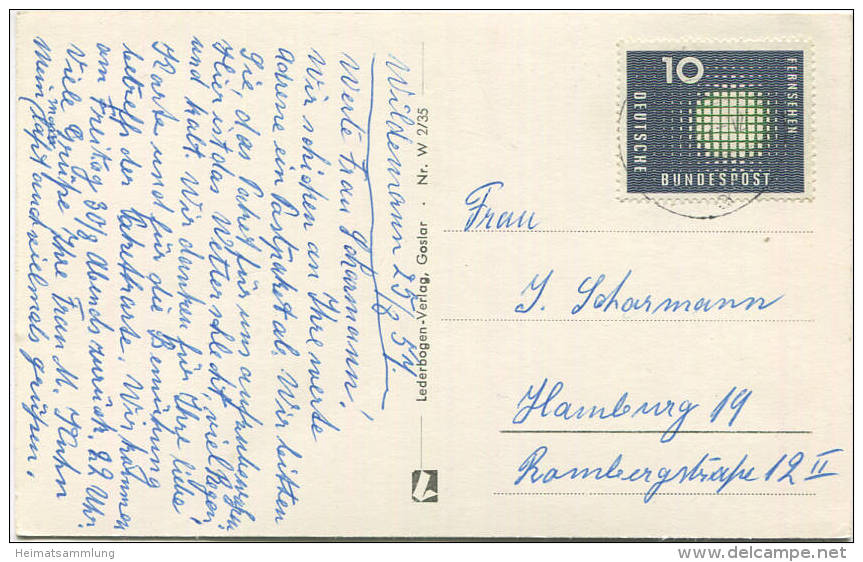 Wildemann 25/8 57
Werte Frau Scharmann!
Wir schicken an Ihre werte
Adresse ein Postpaket ab. Wir bitten
Sie das Paket für uns aufzubewahren
Hier ist das Wetter schlecht, viel Regen
und kalt. Wir danken für Ihre liebe
Karte und für die Bemühung
betreff der Fahrkarte. Wir kommen
am Freitag 30/8 Abends zurück. 22 Uhr.
Viele Grüße Ihre Frau M. Kuhn
Mein Mann läßt auch vielmals grüßen.
Lederbogen-Verlag, Goslar · Nr. W 2/35
10
FERNSEHEN
DEUTSCHE
BUNDESPOST
Frau
J. Scharmann
Hamburg 19
Rombergstraße 12 II
Heimatsammlung
delcampe.net